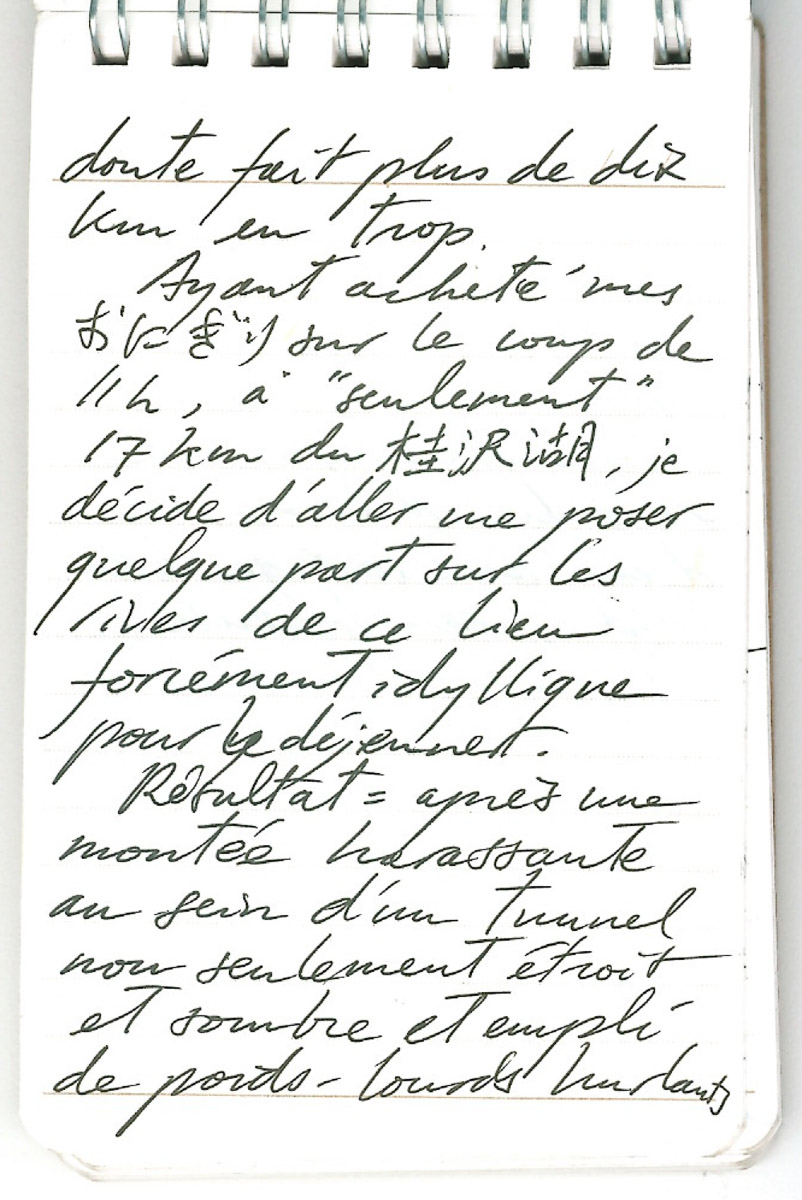 doute fait plus de dix
km en trop.
Ayant acheté mes
おにぎり sur le coup de
11h, à "seulement"
17 km du 桂沢湖, je
décide d'aller me poser
quelque part sur les
rives de ce lieu
forcément idyllique
pour déjeuner.
Résultat = après une
montée harassante
au sein d'un tunnel
non seulement étroit
et sombre et empli
de poids-lourds hurlants